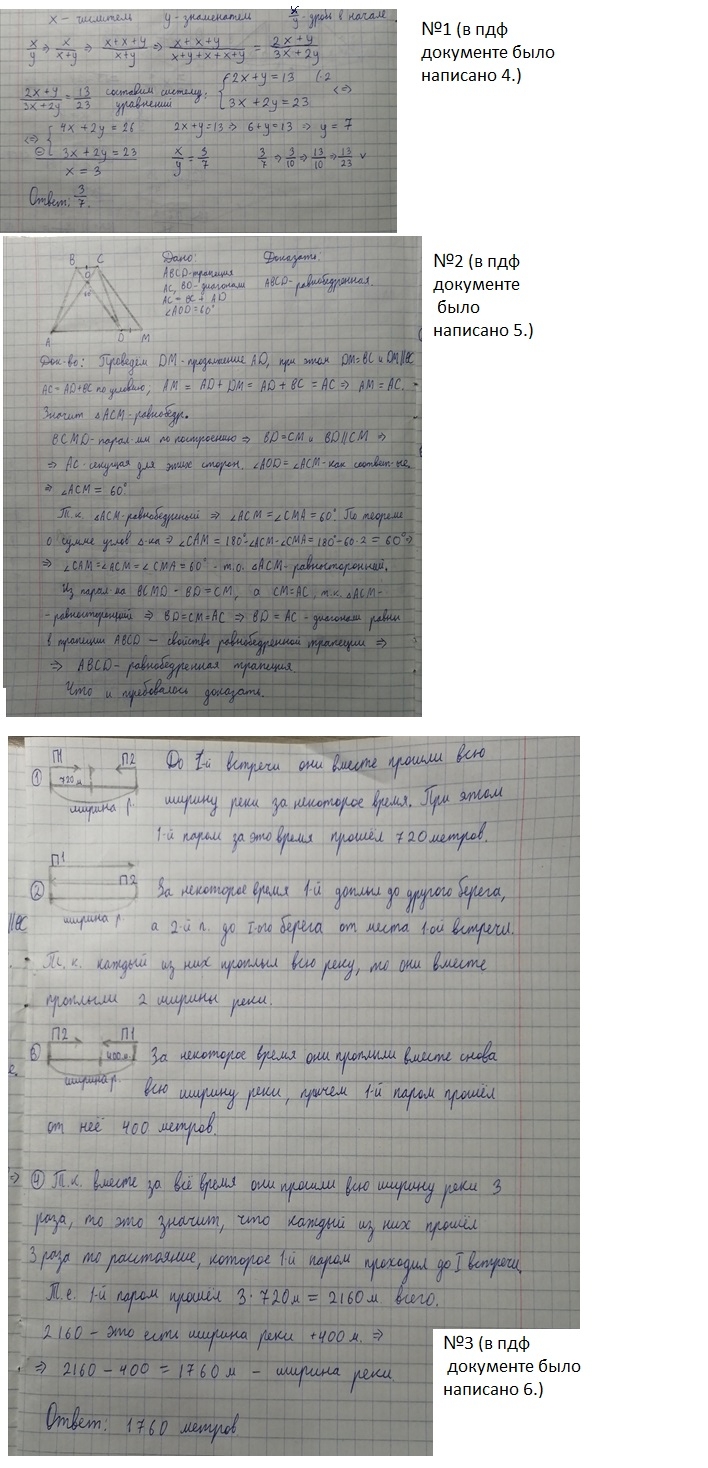 x - числитель y - знаменатель x/y - дробь в начале.
x/y ⇒ x/(x+y) ⇒ (x+x+y)/(x+y) ⇒ (x+x+y)/(x+y+x+x+y) = (2x+y)/(3x+2y)
(2x+y)/(3x+2y) = 13/23 составим систему уравнений: { 2x+y=13 |·2 3x+2y=23 <=>
<=> { 4x+2y=26 2x+y=13 ⇒ 6+y=13 ⇒ y=7
⊖ 3x+2y=23
x=3 x/y = 3/7 3/7 ⇒ 3/10 ⇒ 13/10 ⇒ 13/23 v
Ответ: 3/7.
№1 (в пдф
документе было
написано 4.)
B C
O
60°
A D M
Дано: Доказать:
ABCD-трапеция ABCD-равнобедренная.
AC, BD-диагонали
AC = BC + AD
∠AOD=60°
№2 (в пдф
документе
было
написано 5.)
Док-во: Проведём DM-продолжение AD, при этом DM=BC и DM||BC
AC=AD+BC по условию, AM = AD+DM=AD+BC=AC ⇒ AM=AC.
Значит ΔACM-равнобедр.
BCMD-парал-мм по построению ⇒ BD=CM и BD||CM ⇒
⇒ AC-секущая для этих сторон. ∠AOD=∠ACM-как соответ-ые.
⇒ ∠ACM = 60°
Т.к. ΔACM-равнобедренный ⇒ ∠ACM=∠CMA=60°. По теореме
о сумме углов Δ-ка ⇒ ∠CAM = 180°-∠ACM-∠CMA=180°-60·2=60° ⇒
⇒ ∠CAM=∠ACM=∠CMA=60° - т.о. ΔACM-равносторонний.
Из парал-ма BCMD - BD=CM, а CM=AC, т.к. ΔACM-
-равносторонний ⇒ BD=CM=AC ⇒ BD=AC-диагонали равны
в трапеции ABCD — свойство равнобедренной трапеции ⇒
⇒ ABCD-равнобедренная трапеция.
Что и требовалось доказать.
П1 П2
① 720 м
ширина р.
До 1-й встречи они вместе прошли всю
ширину реки за некоторое время. При этом
1-й паром за это время прошёл 720 метров.
П1
② П2
ширина р.
За некоторое время 1-й доплыл до другого берега,
||BC а 2-й п. до I-ого берега от места 1-ой встречи.
Т.к. каждый из них проплыл всю реку, то они вместе
проплыли 2 ширины реки.
П2 П1
③ 400м
ширина р.
За некоторое время они проплыли вместе снова
всю ширину реки, причем 1-й паром прошёл
от неё 400 метров.
⇒ ④ Т.к. вместе за всё время они прошли всю ширину реки 3
раза, то это значит, что каждый из них прошёл
3 раза то расстояние, которое 1-й паром проходил до I встречи.
Т.е. 1-й паром прошёл 3·720м = 2160м всего.
2160 - это есть ширина реки +400 м. ⇒
⇒ 2160 - 400 = 1760 м - ширина реки.
Ответ: 1760 метров
№3 (в пдф
документе было
написано 6.)